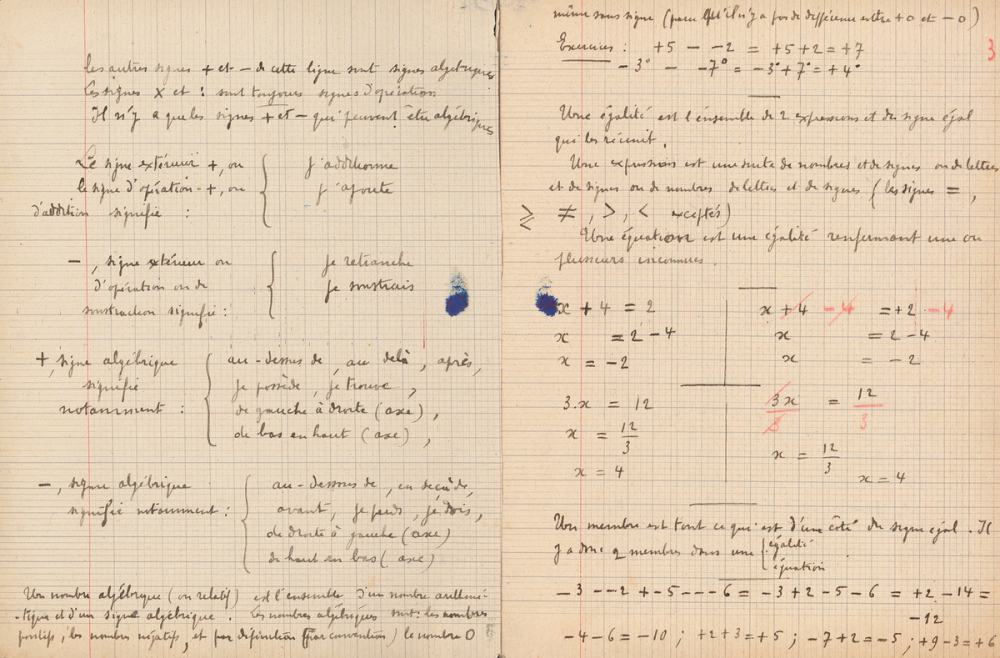 les autres signes + et - de cette ligne sont signes algébriques
les signes x et : sont toujours signes d'opération
Il n'y a que les signes + et - qui peuvent être algébriques
Le signe extérieur +, ou
le signe d'opération +, ou
d'addition signifie :
j'additionne
j'ajoute
-, signe extérieur ou
d'opération ou de
soustraction signifie :
je retranche
je soustrais
+, signe algébrique
signifie
notamment :
au-dessus de, au delà, après,
je possède, je trouve,
de gauche à droite (axe),
de bas en haut (axe),
-, signe algébrique
signifie notamment :
au-dessous de, en deçà de,
avant, je perds, je dois,
de droite à gauche (axe)
de haut en bas (axe)
Un nombre algébrique (ou relatif) est l'ensemble d'un nombre arithmé-
-tique et d'un signe algébrique. Les nombres algébriques sont : les nombres
positifs, les nombres négatifs, et par définition (par convention) le nombre 0
même sans signe (parce qu'il n'y a pas de différence entre +0 et -0)
3
Exercices : +5 - -2 = +5+2 = +7
-3° - -7° = -3°+7° = +4°
Une égalité est l'ensemble de 2 expressions et du signe égal
qui les réunit.
Une expression est une suite de nombres et de signes ou de lettres
et de signes ou de nombres de lettres et de signes (les signes =,
≷ ≠, >, < exceptés)
Une équation est une égalité renfermant une ou
plusieurs inconnues.
x + 4 = 2
x = 2 - 4
x = -2
x + 4 - 4 = +2 - 4
x = 2 - 4
x = -2
3.x = 12
x = 12/3
x = 4
3x/3 = 12/3
x = 12/3
x = 4
Un membre est tout ce qui est d'une côté du signe égal. Il
y a donc 2 membres dans une { égalité
équation
-3 - -2 + -5 - - -6 = -3 + 2 - 5 - 6 = +2 - 14 =
-12
-4 - 6 = -10 ; +2 + 3 = +5 ; -7 + 2 = -5 ; +9 - 3 = +6